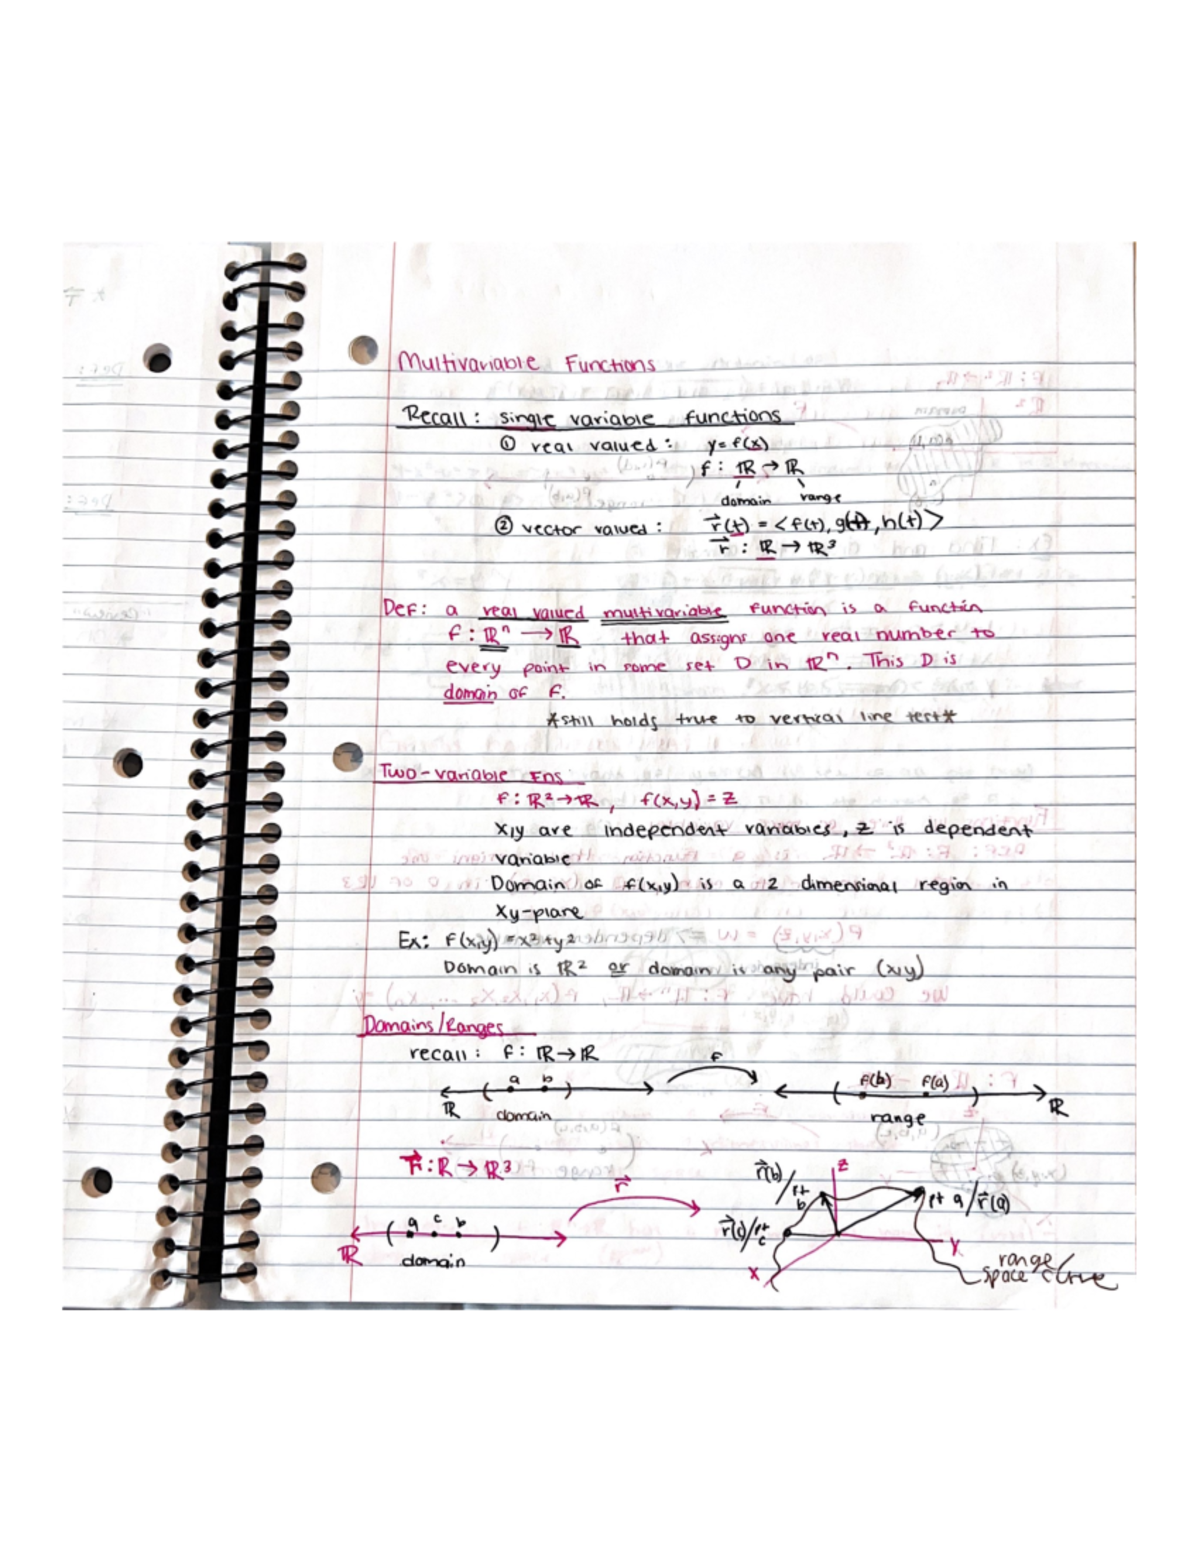 Multivariable Functions
Recall: single variable functions
① real valued: y = f(x)
f: ℝ → ℝ
domain range
② vector valued: r⃗(t) = <f(t), g(t), h(t)>
r⃗: ℝ → ℝ³
Def: a real valued multivariable function is a function
f: ℝⁿ → ℝ that assigns one real number to
every point in some set D in ℝⁿ. This D is
domain of f.
*still holds true to vertical line test*
Two-variable Fns
f: ℝ² → ℝ, f(x,y) = z
x,y are independent variables, z is dependent
variable
Domain of f(x,y) is a 2 dimensional region in
xy-plane
Ex: f(x,y) = x² + y²
Domain is ℝ² or domain is any pair (x,y)
Domains/Ranges
recall: f: ℝ → ℝ
f
a b f(b) f(a)
ℝ domain range ℝ
r⃗: ℝ → ℝ³
r⃗
r⃗(b)/pt b z pt a/r⃗(a)
a c b r⃗(c)/pt c y
ℝ domain x range/
space curve